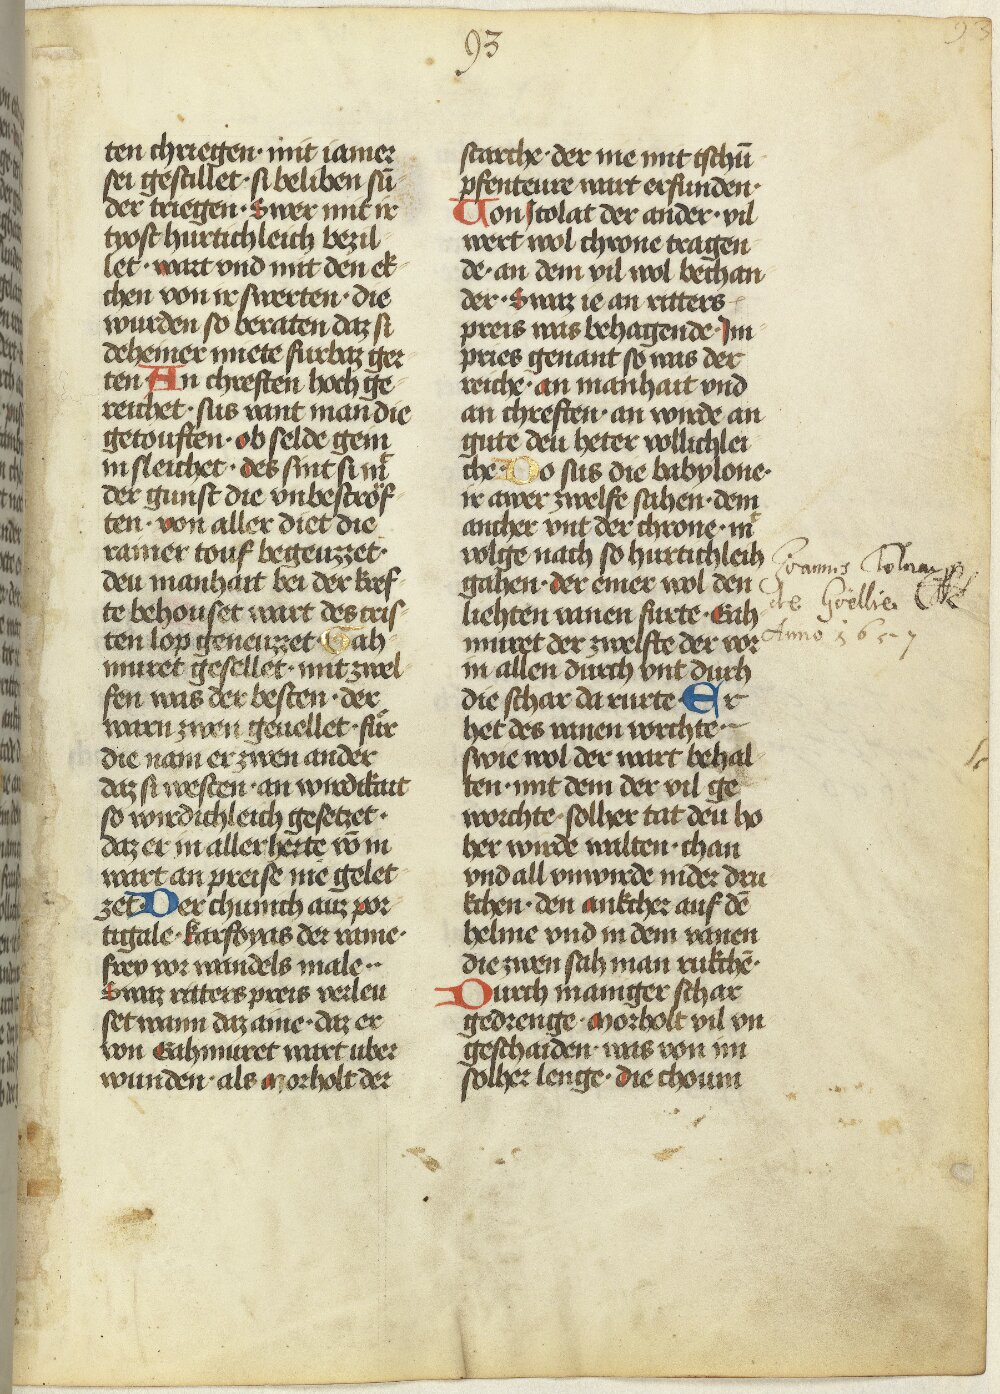 93
93
ten chriegen · mit iamer
sei gestillet · si beliben sū
der triegen · Swer mit ir
trost hurtichleich bezil
let · wart vnd mit den ek
chen von ir swerten · die
wurden so beraten daz si
deheiner miete furbaz ger
ten An chreften hoch ge
reichet · sus vant man die
getouften · ob selde gein
in sleichet · des sint si in
der gunst die vnbeströf
ten · von aller diet die
rainer touf begeuzzet ·
deu manhait bei der kref
te behouset wart des cris
ten lop geneuzzet · Gah
muret gesellet · mit zwel
fen was der besten · der
warn zwen geuellet · für
die nam er zwen ander
daz si westen · an wirdikait
so wirdichleich gesetzet ·
daz er in aller herte vō in
wart an preise nie gelet
zet · Der chunich auz por
tigale · karsoyas der name ·
frey vor wandels male ··
Swaz ritters preis verleu
set wann daz aine · daz er
von Gahmuret wart uber
wunden · als Morholt der
starche · der nie mit tschū
pfenteure wart erfunden ·
Von Itolat der ander · vil
wert wol chrone tragen
de · an dem vil wol bechan
der · Swaz ie an ritters
preis was behagende · Im
pries genant so was der
reiche · an manhait vnd
an chreften · an wirde an
gute deu heter vollichlei
che · Do sus die babylone ·
ir awer zwelfe sahen · dem
ancher vnt der chrone · in
volge nach so hurtichleih
gahen · der einer wol den
liehten vanen furte · Gah
muret der zwelfte der vor
in allen durch vnt durch
die schar da rurte Er
het des vanen vorchte ·
swie wol der wart behal
ten · mit dem der vil ge
worchte · solher tat deu ho
her wirde walten · chan
vnd all vnwirde nider dru
kchen · den ankcher auf dē
helme vnd in dem vanen
die zwen sah man rukchē ·
Durch maniger schar
gedrenge · Morholt vil vn
geschaiden · was von im
solher lenge · die choum
Joannes
de
Anno 1657